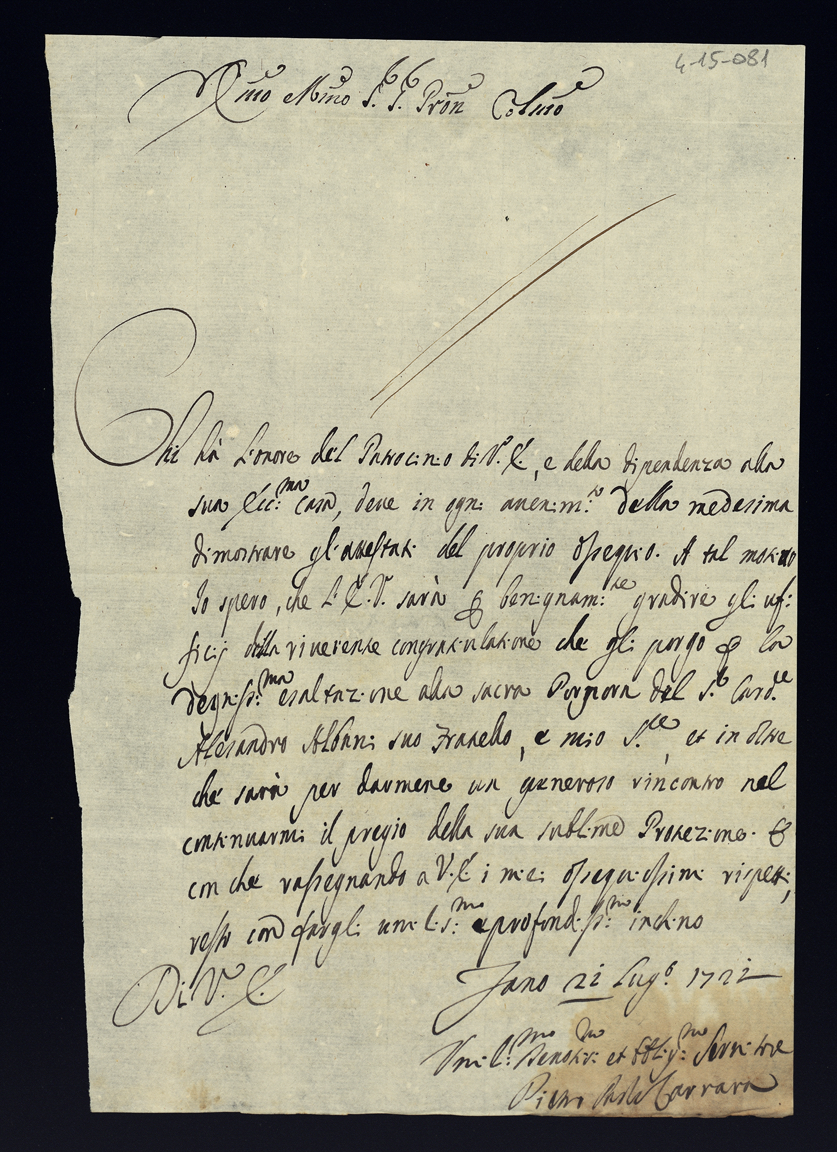 4-15-081
Emo e Rmo S. S. Pron Colmo
Chi hà l'onore del Patrocinio di V. E., e della dipendenza alla
sua Ecc:ma Casa, deve in ogni auenim:to della medesima
dimostrare gl'attestati del proprio ossequio. A tal motiuo
Io spero, che l'E. V. sarà p benignam:te gradire gli uf:
ficij della riuerente congratulatione che gli porgo p la
degniss:ma esaltazione alla sacra Porpora del S.r Card.e
Alesandro Albani suo Fratello, e mio S.re, et in oltre
che sarà per darmene un generoso rincontro nel
continuarmi il pregio della sua sublime Protezione. E
con che rassegnando a V. E. i miei ossequiosissimi rispetti,
resto con fargli umilis:mo e profondiss:mo inchino
Di V. E.
Fano 21 Lug.o 1721
Vmil:mo Deuot:mo et Obblig:mo Seruitore
Pietro Paolo Carrara